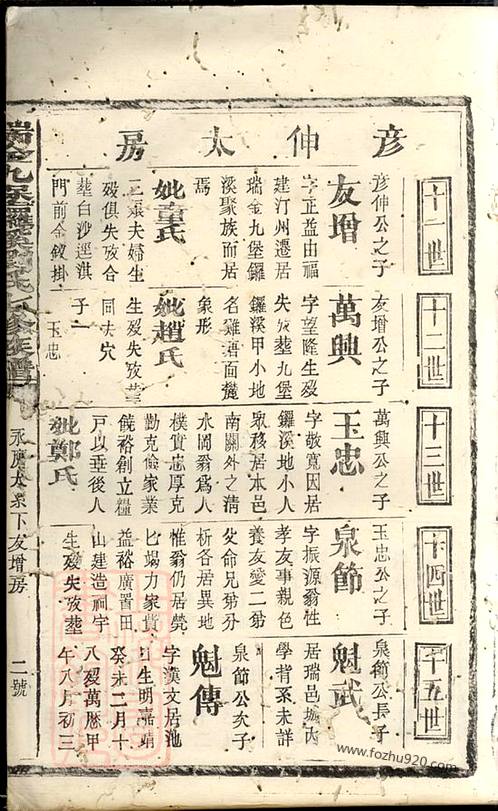 彥伸太房
十一世
彥伸公之子
友增
字正益由福
建汀州遷居
瑞金九堡鑼
溪聚族而居
焉
妣袁氏
二袁夫婦生
歿俱失攷合
塟白沙逕淇
門前金釵掛
十二世
友增公之子
萬興
字望隆生歿
失攷塟九堡
鑼溪甲小地
名雞湖面鱉
象形
妣趙氏
生歿失攷塟
同夫穴
子一
玉忠
十三世
萬興公之子
玉忠
字敬寬因居
鑼溪地小人
眾移居本邑
南關外之清
水圳翁為人
樸實忠厚克
勤克儉家業
饒裕創立糧
戶以垂後人
妣鄭氏
十四世
玉忠公之子
泉節
字振源翁性
孝友事親色
養友愛二弟
父命兄弟分
析各居異地
惟翁仍居
七場力家貲
益裕廣置田
山建造祠宇
生歿失攷塟
十五世
泉節公長子
魁武
居瑞邑城內
學背系未詳
泉節公次子
魁傳
字漢文居池
口生明嘉靖
癸未二月十
八歿萬曆甲
午八月初三
永慶太泉下友增房
二號
www.fozhu920.com